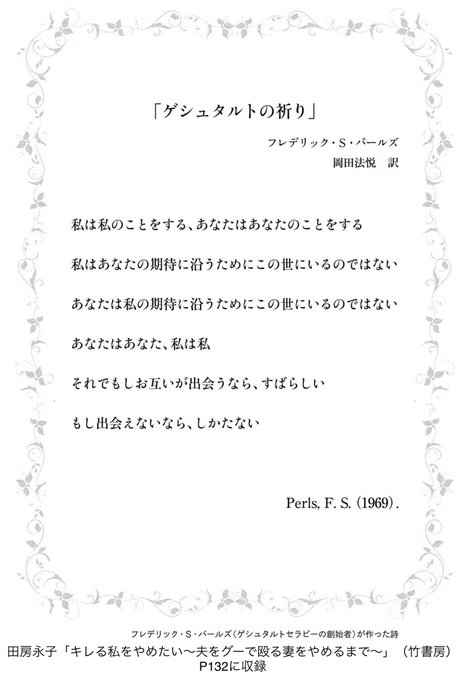 「ゲシュタルトの祈り」
フレデリック・S・パールズ
岡田法悦　訳
私は私のことをする、あなたはあなたのことをする
私はあなたの期待に沿うためにこの世にいるのではない
あなたは私の期待に沿うためにこの世にいるのではない
あなたはあなた、私は私
それでもしお互いが出会うなら、すばらしい
もし出会えないなら、しかたない
Perls, F. S. (1969) .
フレデリック・S・パールズ（ゲシュタルトセラピーの創始者）が作った詩
田房永子「キレる私をやめたい〜夫をグーで殴る妻をやめるまで〜」（竹書房）
P132に収録